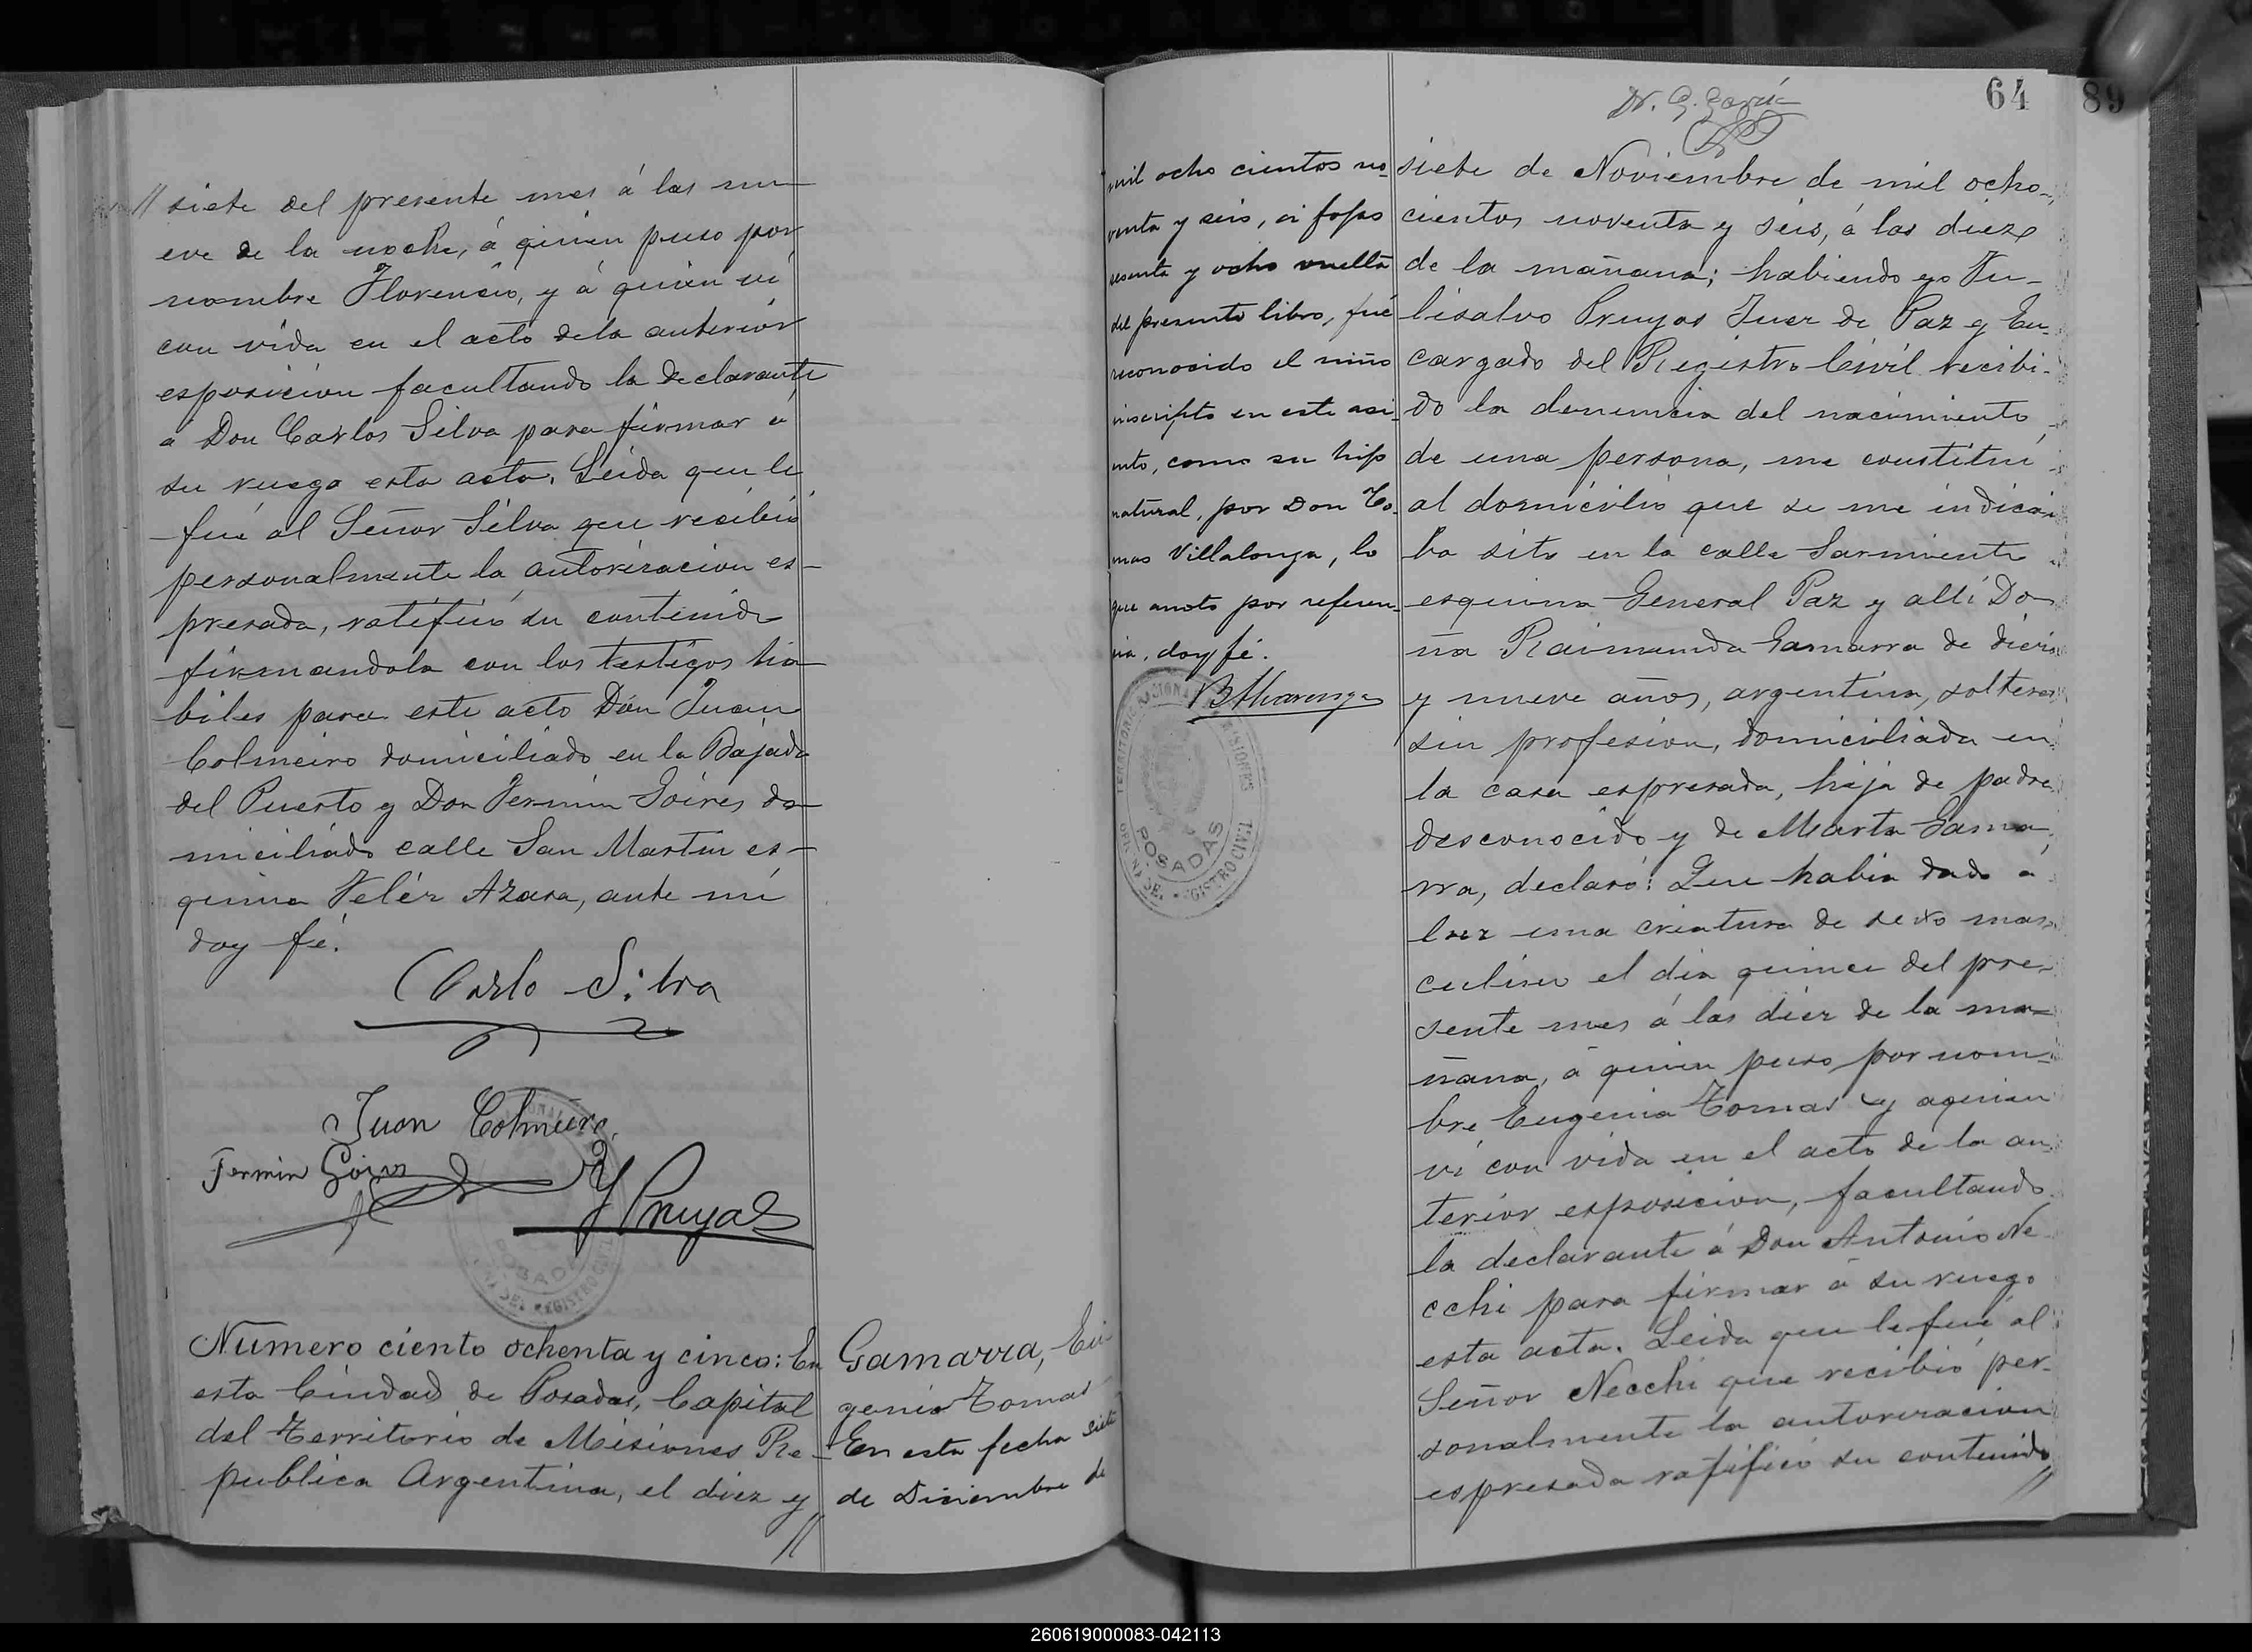 // siete del presente mes á las nu
eve de la noche, á quien puso por
nombre Florencio, y á quien vi
con vida en el acto dela anterior
esposicion facultando la declarante
a Don Carlos Silva para firmar á
su ruego esta acta. Leida que le
fué al Señor Silva que recibió
personalmente la autorizacion es-
presada, ratificó su contenido
firmandola con los testigos há-
biles para este acto Don Juan
Colmeiro domiciliado en la Bajada
del Puerto y Don Fermin Goires do-
miciliado calle San Martin es-
quina Feléz Azara, ante mi
doy fé.
Carlo Silva
Juan Colmeiro
Fermin Goires
Pruyas
Número ciento ochenta y cinco: En
esta Ciudad de Posadas, Capital
del Territorio de Misiones Re-
publica Argentina, el diez y
//
Gamarra, Eu-
genio Tomas
En esta fecha siete
de Diciembre de
mil ocho cientos no-
venta y seis, a fojas
sesenta y ocho vuelta
del presente libro, fué
reconocido el niño
inscripto en este asi-
ento, como su hijo
natural, por Don To-
mas Villalonga, lo
que anoto por referen-
cia, doy fé.
B Alvarenga
POSADAS
64
89
Dr. G. García
siete de Noviembre de mil ocho-
cientos noventa y seis, á las diez
de la mañana; habiendo yo Tu-
lisalvo Pruyas Juez de Paz y En
cargado del Registro Civil recibi-
do la denuncia del nacimiento
de una persona, me constitui
al domicilio que se me indica-
ba sito en la calle Sarmiento
esquina General Paz y allí Do-
ña Raimunda Gamarra de diez
y nueve años, argentina, soltera
sin profesion, domiciliada en
la casa espresada, hija de padre
desconocido y de Marta Gama-
rra, declaró: Que habia dado á
luz una criatura de sexo mas-
culino el dia quince del pre-
sente mes á las diez de la ma-
ñana, á quien puso por nom-
bre Eugenio Tomas y aquien
vi con vida en el acto de la an-
terior esposicion, facultando
la declarante á Don Antonio Ne
cchi para firmar á su ruego
esta acta. Leida que le fué al
Señor Necchi que recibió per-
sonalmente la autorizacion
espresada ratificó su contenido
//
260619000083-042113